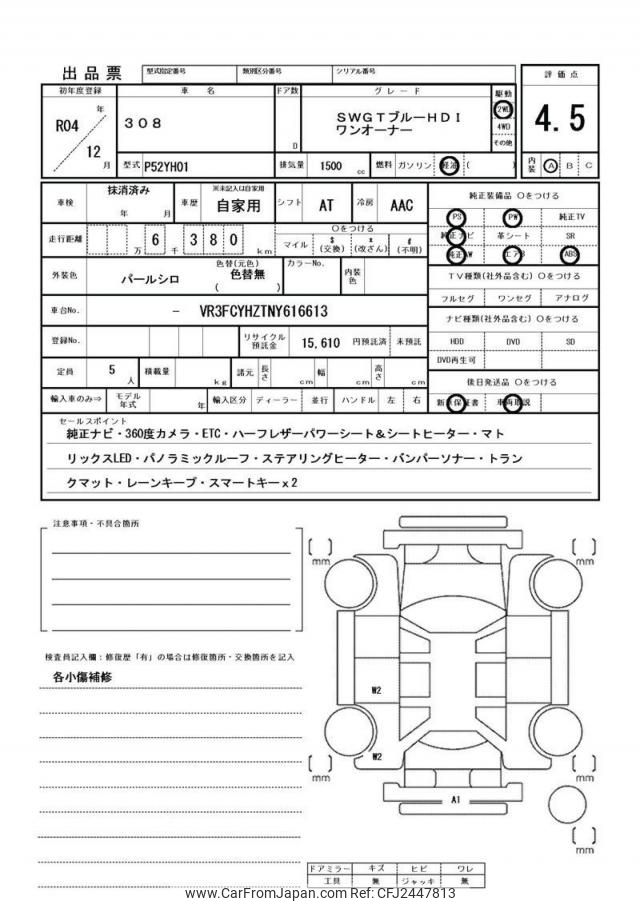 出品票 型式指定番号 類別区分番号 シリアル番号 評価点
初年度登録 車名 ドア数 グレード 駆動
R04 年 12 月
308
D
SWGTブルーHDI
ワンオーナー
2WD
4WD
その他
4.5
型式 P52YH01 排気量 1500 cc 燃料 ガソリン 軽油 ( )
内装 A B C
車検 抹消済み 年 月 車歴 ※未記入は自家用 自家用 シフト AT 冷房 AAC
純正装備品 ○をつける
PS PW 純正TV
純正ナビ 革シート SR
純正AW エアB ABS
走行距離 万 6 千 380 km
○をつける
マイル $ (交換) x (改ざん) # (不明)
外装色 パールシロ 色替(元色) 色替無 ( ) カラーNo. 内装色
TV種類(社外品含む) ○をつける
フルセグ ワンセグ アナログ
車台No. - VR3FCYHZTNY616613
ナビ種類(社外品含む) ○をつける
HDD DVD SD
DVD再生可
登録No. リサイクル預託金 15,610 円預託済 未預託
定員 5 人 積載量 kg 諸元 長さ cm 幅 cm 高さ cm
後日発送品 ○をつける
新車保証書 車両取説
輸入車のみ⇒ モデル年式 年 輸入区分 ディーラー 並行 ハンドル 左 右
セールスポイント
純正ナビ・360度カメラ・ETC・ハーフレザーパワーシート＆シートヒーター・マト
リックスLED・パノラミックルーフ・ステアリングヒーター・バンパーソナー・トラン
クマット・レーンキープ・スマートキーx2
注意事項・不具合箇所
検査員記入欄：修復歴「有」の場合は修復箇所・交換箇所を記入
各小傷補修
mm
mm
W2
W2
A1
mm
mm
mm
ドアミラー キズ ヒビ ワレ
工具 無 ジャッキ 無
www.CarFromJapan.com Ref: CFJ2447813